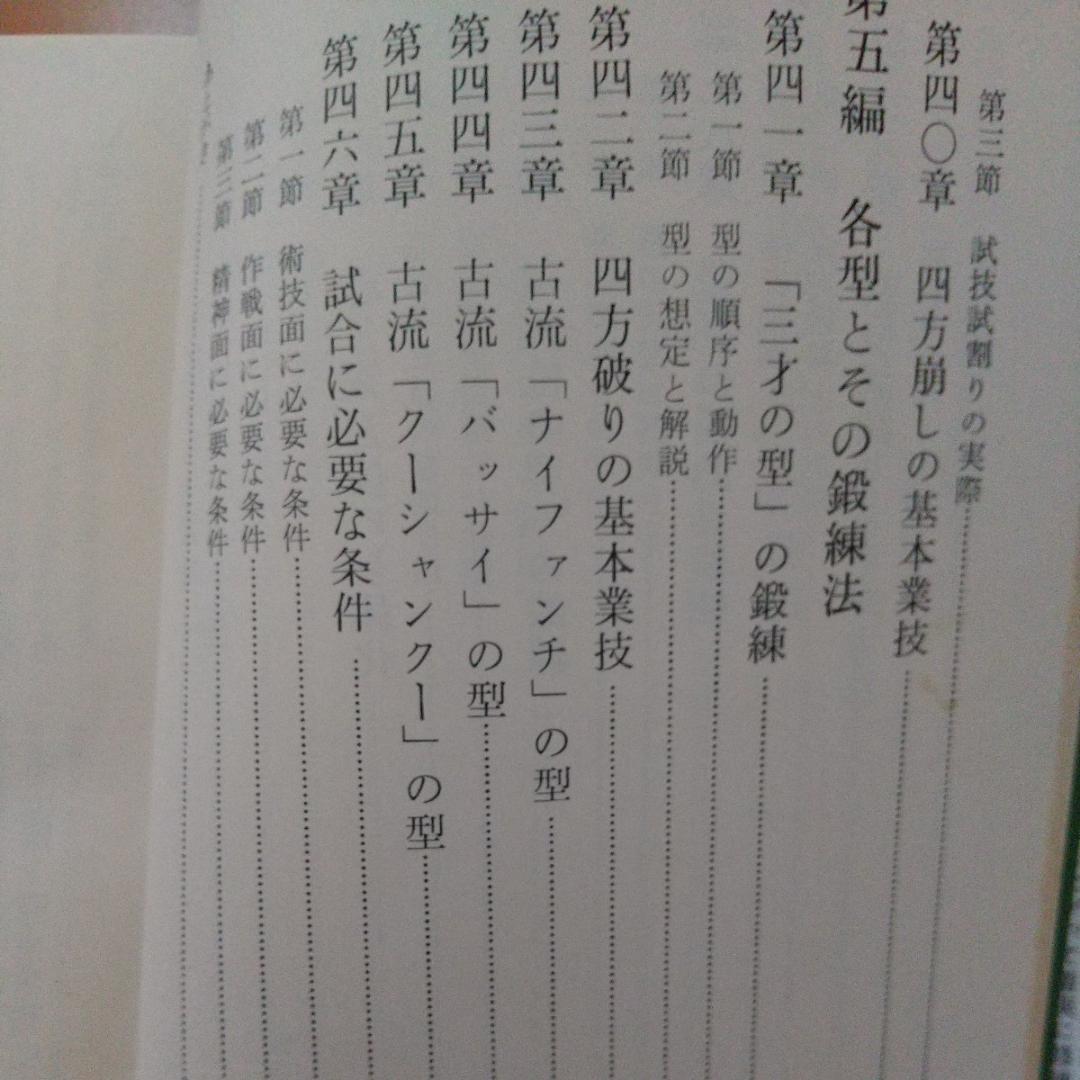 第三節　試技試割りの実際
第四〇章　四方崩しの基本業技
第五編　各型とその鍛練法
第四一章　「三才の型」の鍛練
第一節　型の順序と動作
第二節　型の想定と解説
第四二章　四方破りの基本業技
第四三章　古流「ナイファンチ」の型
第四四章　古流「バッサイ」の型
第四五章　古流「クーシャンクー」の型
第四六章　試合に必要な条件
第一節　術技面に必要な条件
第二節　作戦面に必要な条件
第三節　精神面に必要な条件